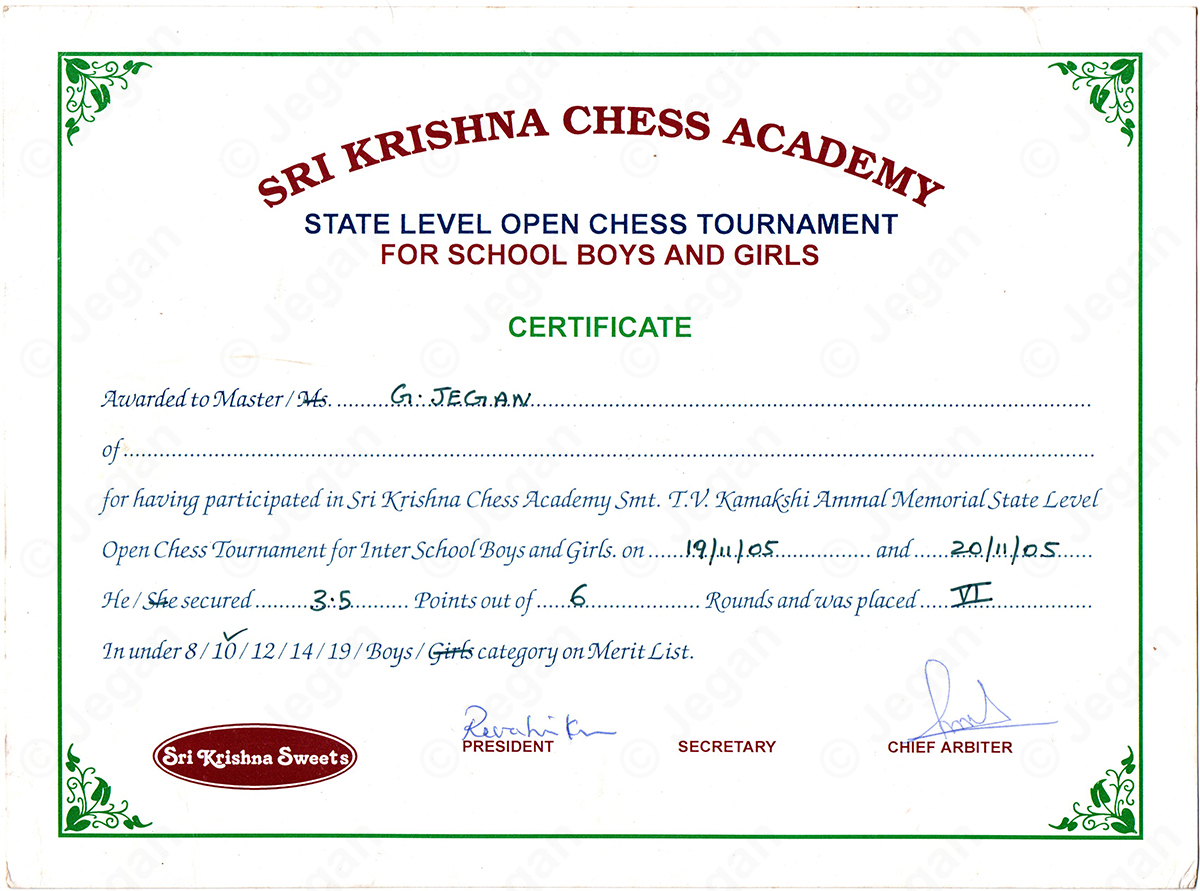 SRI KRISHNA CHESS ACADEMY
STATE LEVEL OPEN CHESS TOURNAMENT
FOR SCHOOL BOYS AND GIRLS
CERTIFICATE
Awarded to Master / Ms. G. JEGAN
of
for having participated in Sri Krishna Chess Academy Smt. T.V. Kamakshi Ammal Memorial State Level
Open Chess Tournament for Inter School Boys and Girls. on 19/11/05 and 20/11/05
He / She secured 3.5 Points out of 6 Rounds and was placed VI
In under 8 / 10 / 12 / 14 / 19 / Boys / Girls category on Merit List.
Sri Krishna Sweets
PRESIDENT SECRETARY CHIEF ARBITER
© Jegan